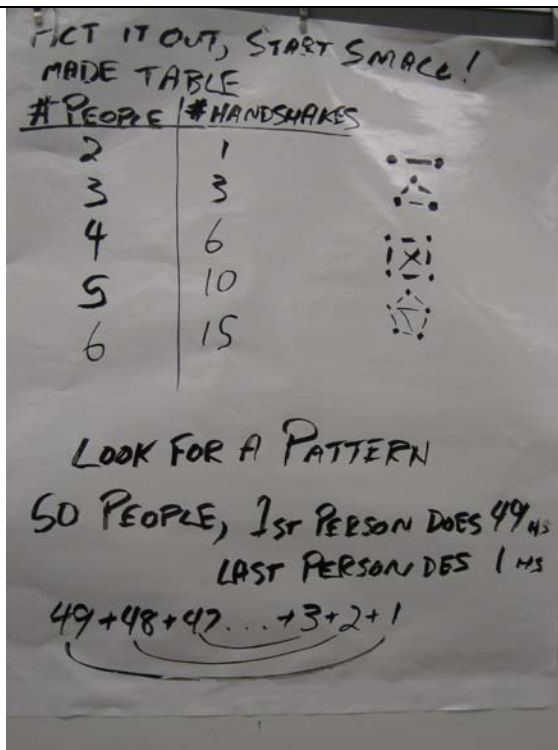 ACT IT OUT, START SMALL!
MADE TABLE
# PEOPLE | # HANDSHAKES
2 1
3 3
4 6
5 10
6 15
LOOK FOR A PATTERN
50 PEOPLE, 1ST PERSON DOES 49 HS
LAST PERSON DES 1 HS
49+48+47...+3+2+1